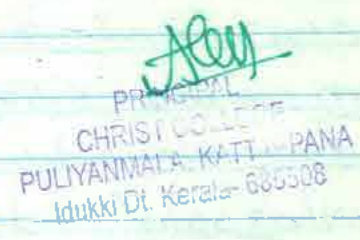 PRINCIPAL
CHRIST COLLEGE
PULIYANMALA, KATTAPPANA
Idukki Dt. Kerala- 685508